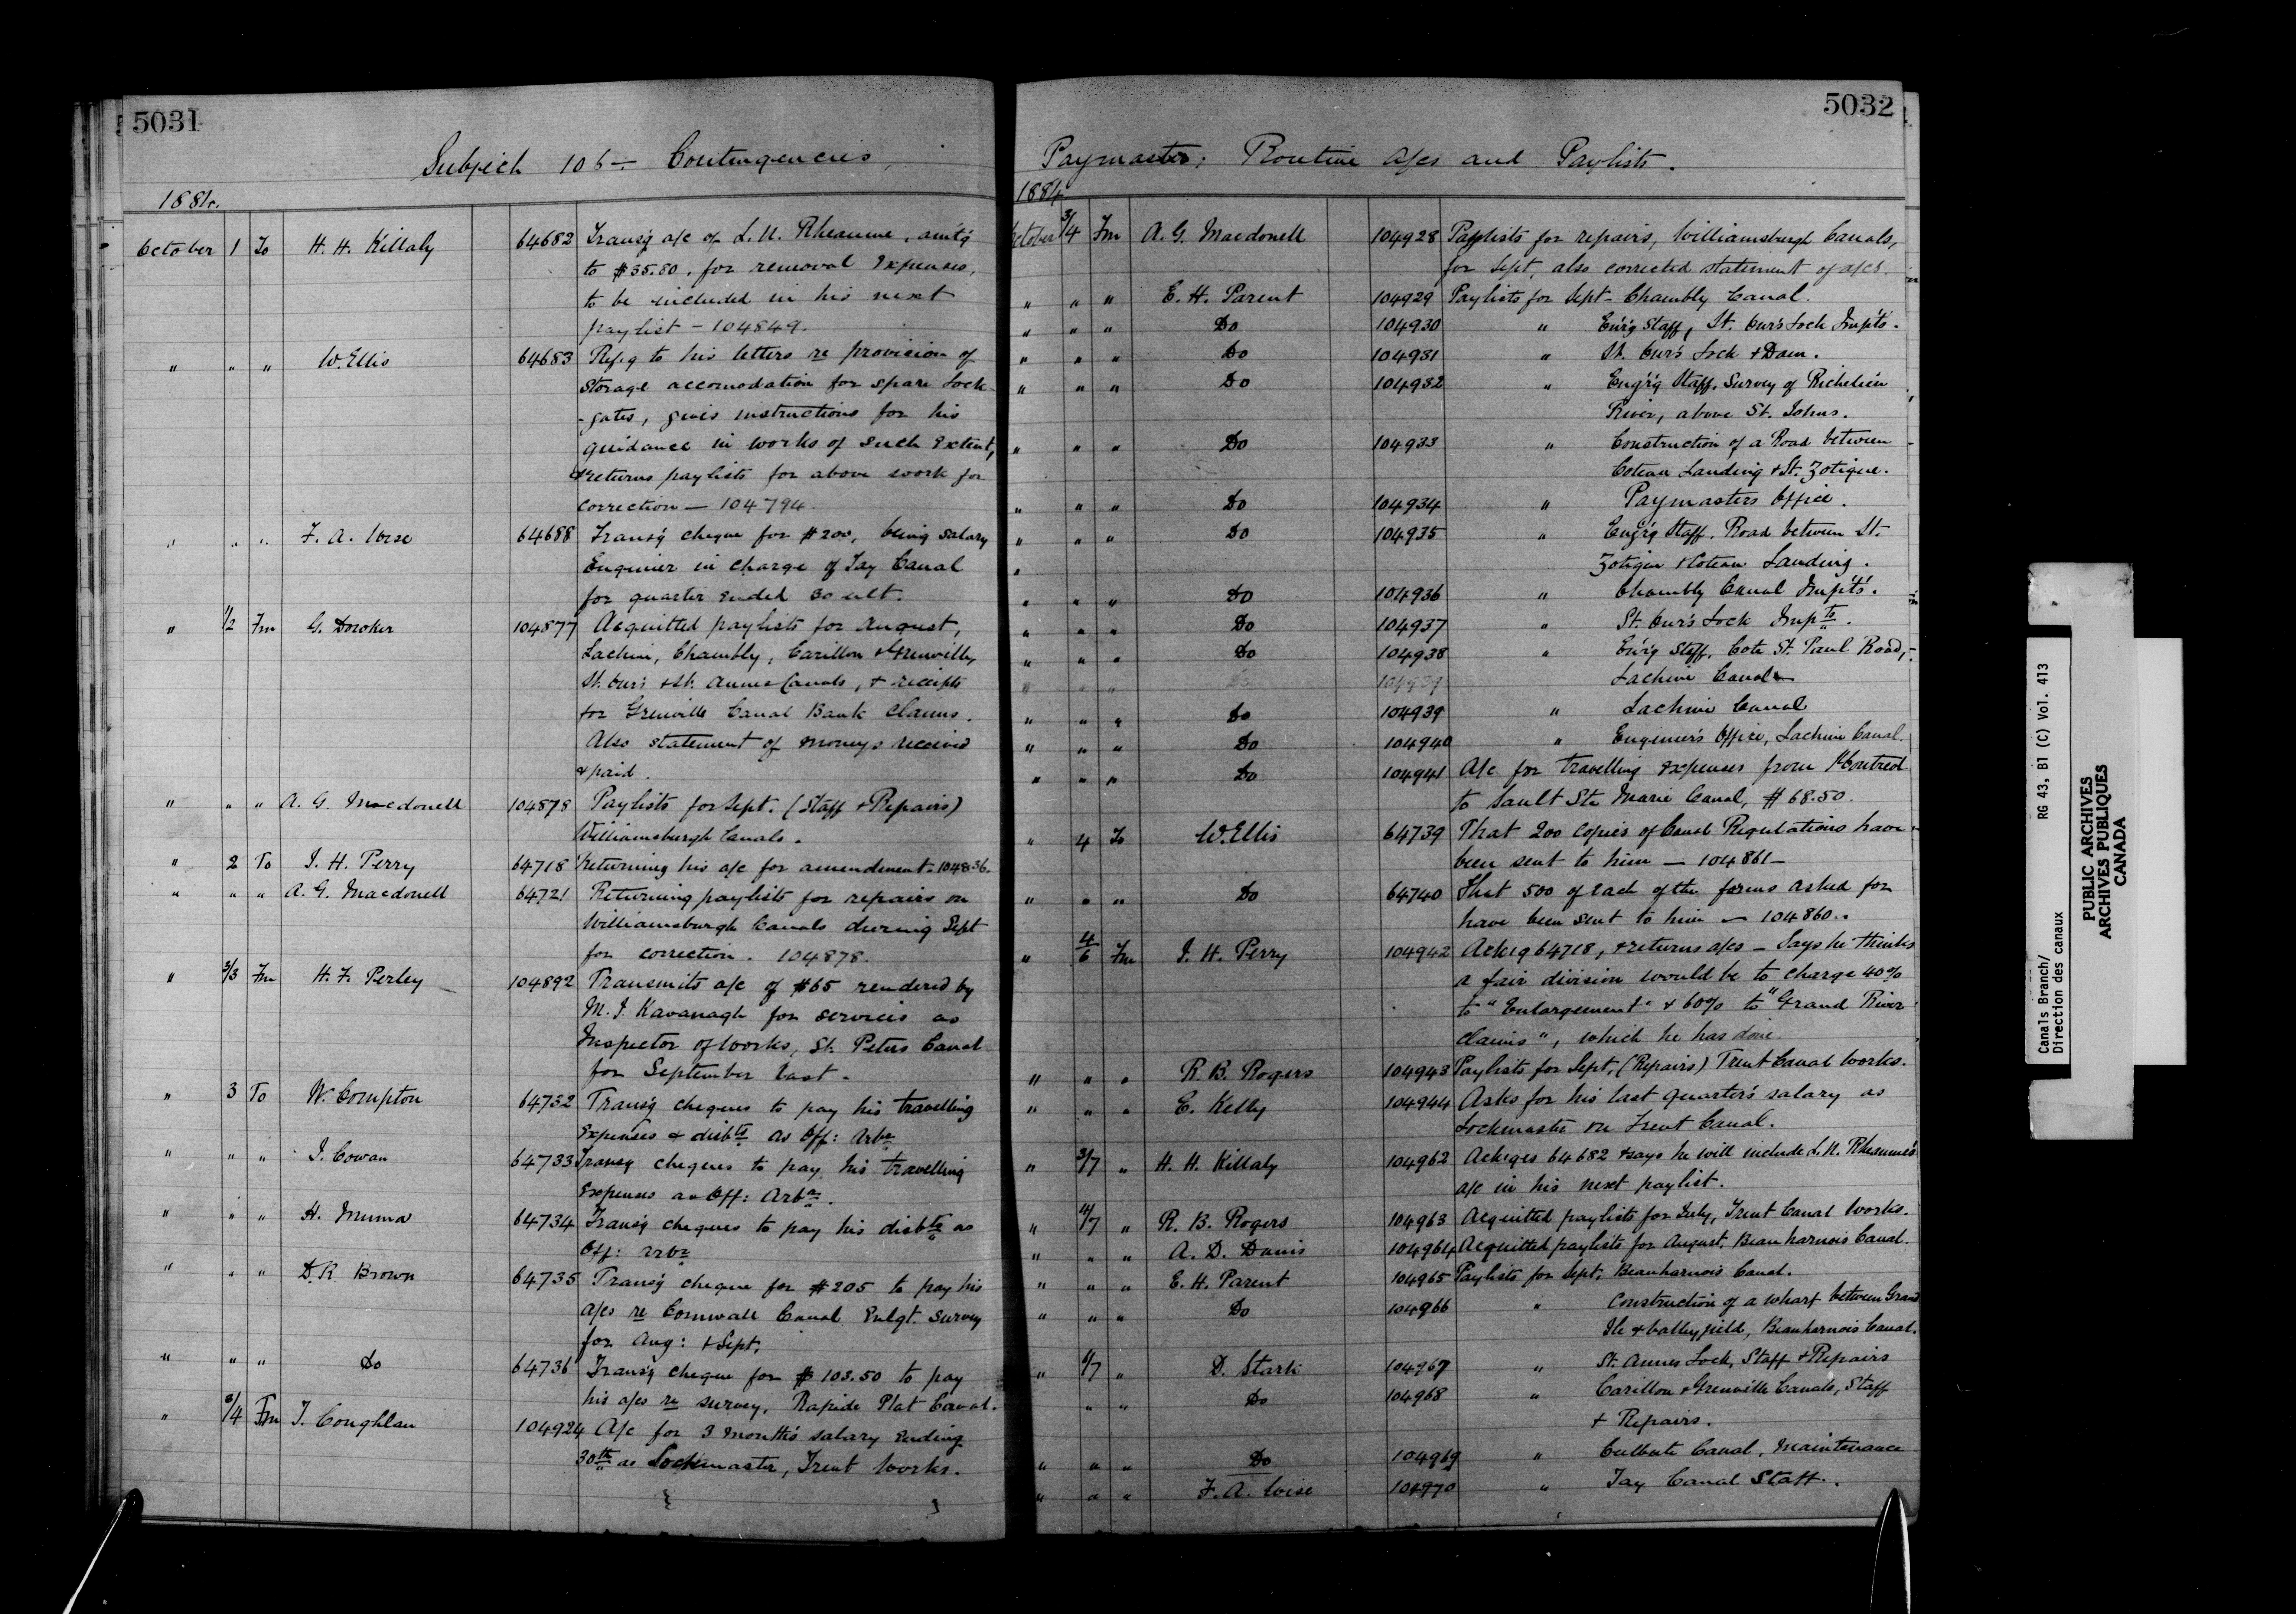 5031
Subject 106 — Contingencies,
1884.
October 1 To H. H. Killaly 64682 Transg a/c of L. N. Rheaume, amtg
to $35.80, for removal expenses,
to be included in his next
paylist - 104849.
" " " W. Ellis 64683 Refg to his letters re provision of
storage accomodation for spare Lock
-gates, gives instructions for his
guidance in works of such extent,
& returns paylists for above work for
correction — 104794.
" " " F. A. Wise 64688 Transg cheque for $200, being salary
Engineer in charge of Tay Canal
for quarter ended 30 ult.
" 1/2 Fm G. Dowker 104877 Acquitted paylists for August,
Lachine, Chambly, Carillon & Grenville,
St. Ours & St. Annes Canals, & receipts
for Grenville Canal Bank claims.
Also statement of moneys received
& paid.
" " " A. G. Macdonell 104878 Paylists for Sept. (Staff & Repairs)
Williamsburgh Canals.
" 2 To J. H. Perry 64718 Returning his a/c for amendment - 104836.
" " " A. G. Macdonell 64721 Returning paylists for repairs on
Williamsburgh Canals during Sept
for correction. 104878.
" 2/3 Fm H. F. Perley 104892 Transmits a/c of $65 rendered by
M. J. Kavanagh for services as
Inspector of Works, St. Peters Canal
for September last.
" 3 To W. Compton 64732 Transg cheques to pay his travelling
expenses & disbts as Off: Arbr
" " " J. Cowan 64733 Transg cheques to pay his travelling
expenses as Off: Arbr.
" " " H. Muma 64734 Transg cheques to pay his disbts as
Off: Arbr
" " " D. R. Brown 64735 Transg cheque for $205 to pay his
a/cs re Cornwall Canal Enlgt. survey
for Aug: & Sept.
" " " Do 64736 Transg cheque for $103.50 to pay
his a/cs re survey, Rapide Plat Canal.
" 3/4 Fm T. Coughlan 104924 A/c for 3 months salary ending
30th as Lockmaster, Trent Works.
5032
Paymaster; Routine A/cs and Paylists.
1884
October 3/4 Fm A. G. Macdonell 104928 Paylists for repairs, Williamsburgh Canals,
for Sept, also corrected statement of a/cs.
" " " E. H. Parent 104929 Paylists for Sept - Chambly Canal.
" " " Do 104930 " En'r'g Staff, St. Our's Lock Imp'ts.
" " " Do 104931 " St. Our's Lock & Dam.
" " " Do 104932 " Eng'r'g Staff, Survey of Richelieu
River, above St. Johns.
" " " Do 104933 " Construction of a Road between
Coteau Landing & St. Zotique.
" " " Do 104934 " Paymasters Office.
" " " Do 104935 " Eng'r'g Staff, Road between St.
" Zotique & Coteau Landing.
" " " Do 104936 " Chambly Canal Imp'ts.
" " " Do 104937 " St. Our's Lock Impts.
" " " Do 104938 " En'r'g Staff, Cote St. Paul Road,
" " " Do 104939 Lachine Canal
" " " Do 104939 " Lachine Canal
" " " Do 104940 " Engineer's Office, Lachine Canal.
" " " Do 104941 A/c for travelling expenses from Montreal
to Sault Ste Marie Canal, $68.50.
" 4 To W. Ellis 64739 That 200 copies of Canal Regulations have
been sent to him — 104861 —
" " " Do 64740 That 500 of each of the forms asked for
have been sent to him — 104860.
" 4/6 Fm J. H. Perry 104942 Ackg 64718, & returns a/cs — Says he thinks
a fair division would be to charge 40%
to "Enlargement" & 60% to "Grand River
claims", which he has done.
" " " R. B. Rogers 104943 Paylists for Sept, (Repairs) Trent Canal Works.
" " " E. Kelly 104944 Asks for his last quarter's salary as
Lockmaster on Trent Canal.
" 3/7 " H. H. Killaly 104962 Ackges 64682 & says he will include L. N. Rheaume's
a/c in his next paylist.
" 4/7 " R. B. Rogers 104963 Acquitted paylists for July, Trent Canal Works.
" " " A. D. Danis 104964 Acquitted paylists for August, Beauharnois Canal.
" " " E. H. Parent 104965 Paylists for Sept, Beauharnois Canal.
" " " Do 104966 " Construction of a wharf between Grand
Ile & Valleyfield, Beauharnois Canal.
" 6/7 " D. Stark 104967 " St. Annes Lock, Staff & Repairs
" " Do 104968 " Carillon & Grenville Canals, Staff
& Repairs.
" " " Do 104969 " Culbute Canal, Maintenance
" " " F. A. Wise 104970 " Tay Canal Staff.
Canals Branch/
Direction des canaux
RG 43, B1 (C) Vol. 413
PUBLIC ARCHIVES
ARCHIVES PUBLIQUES
CANADA